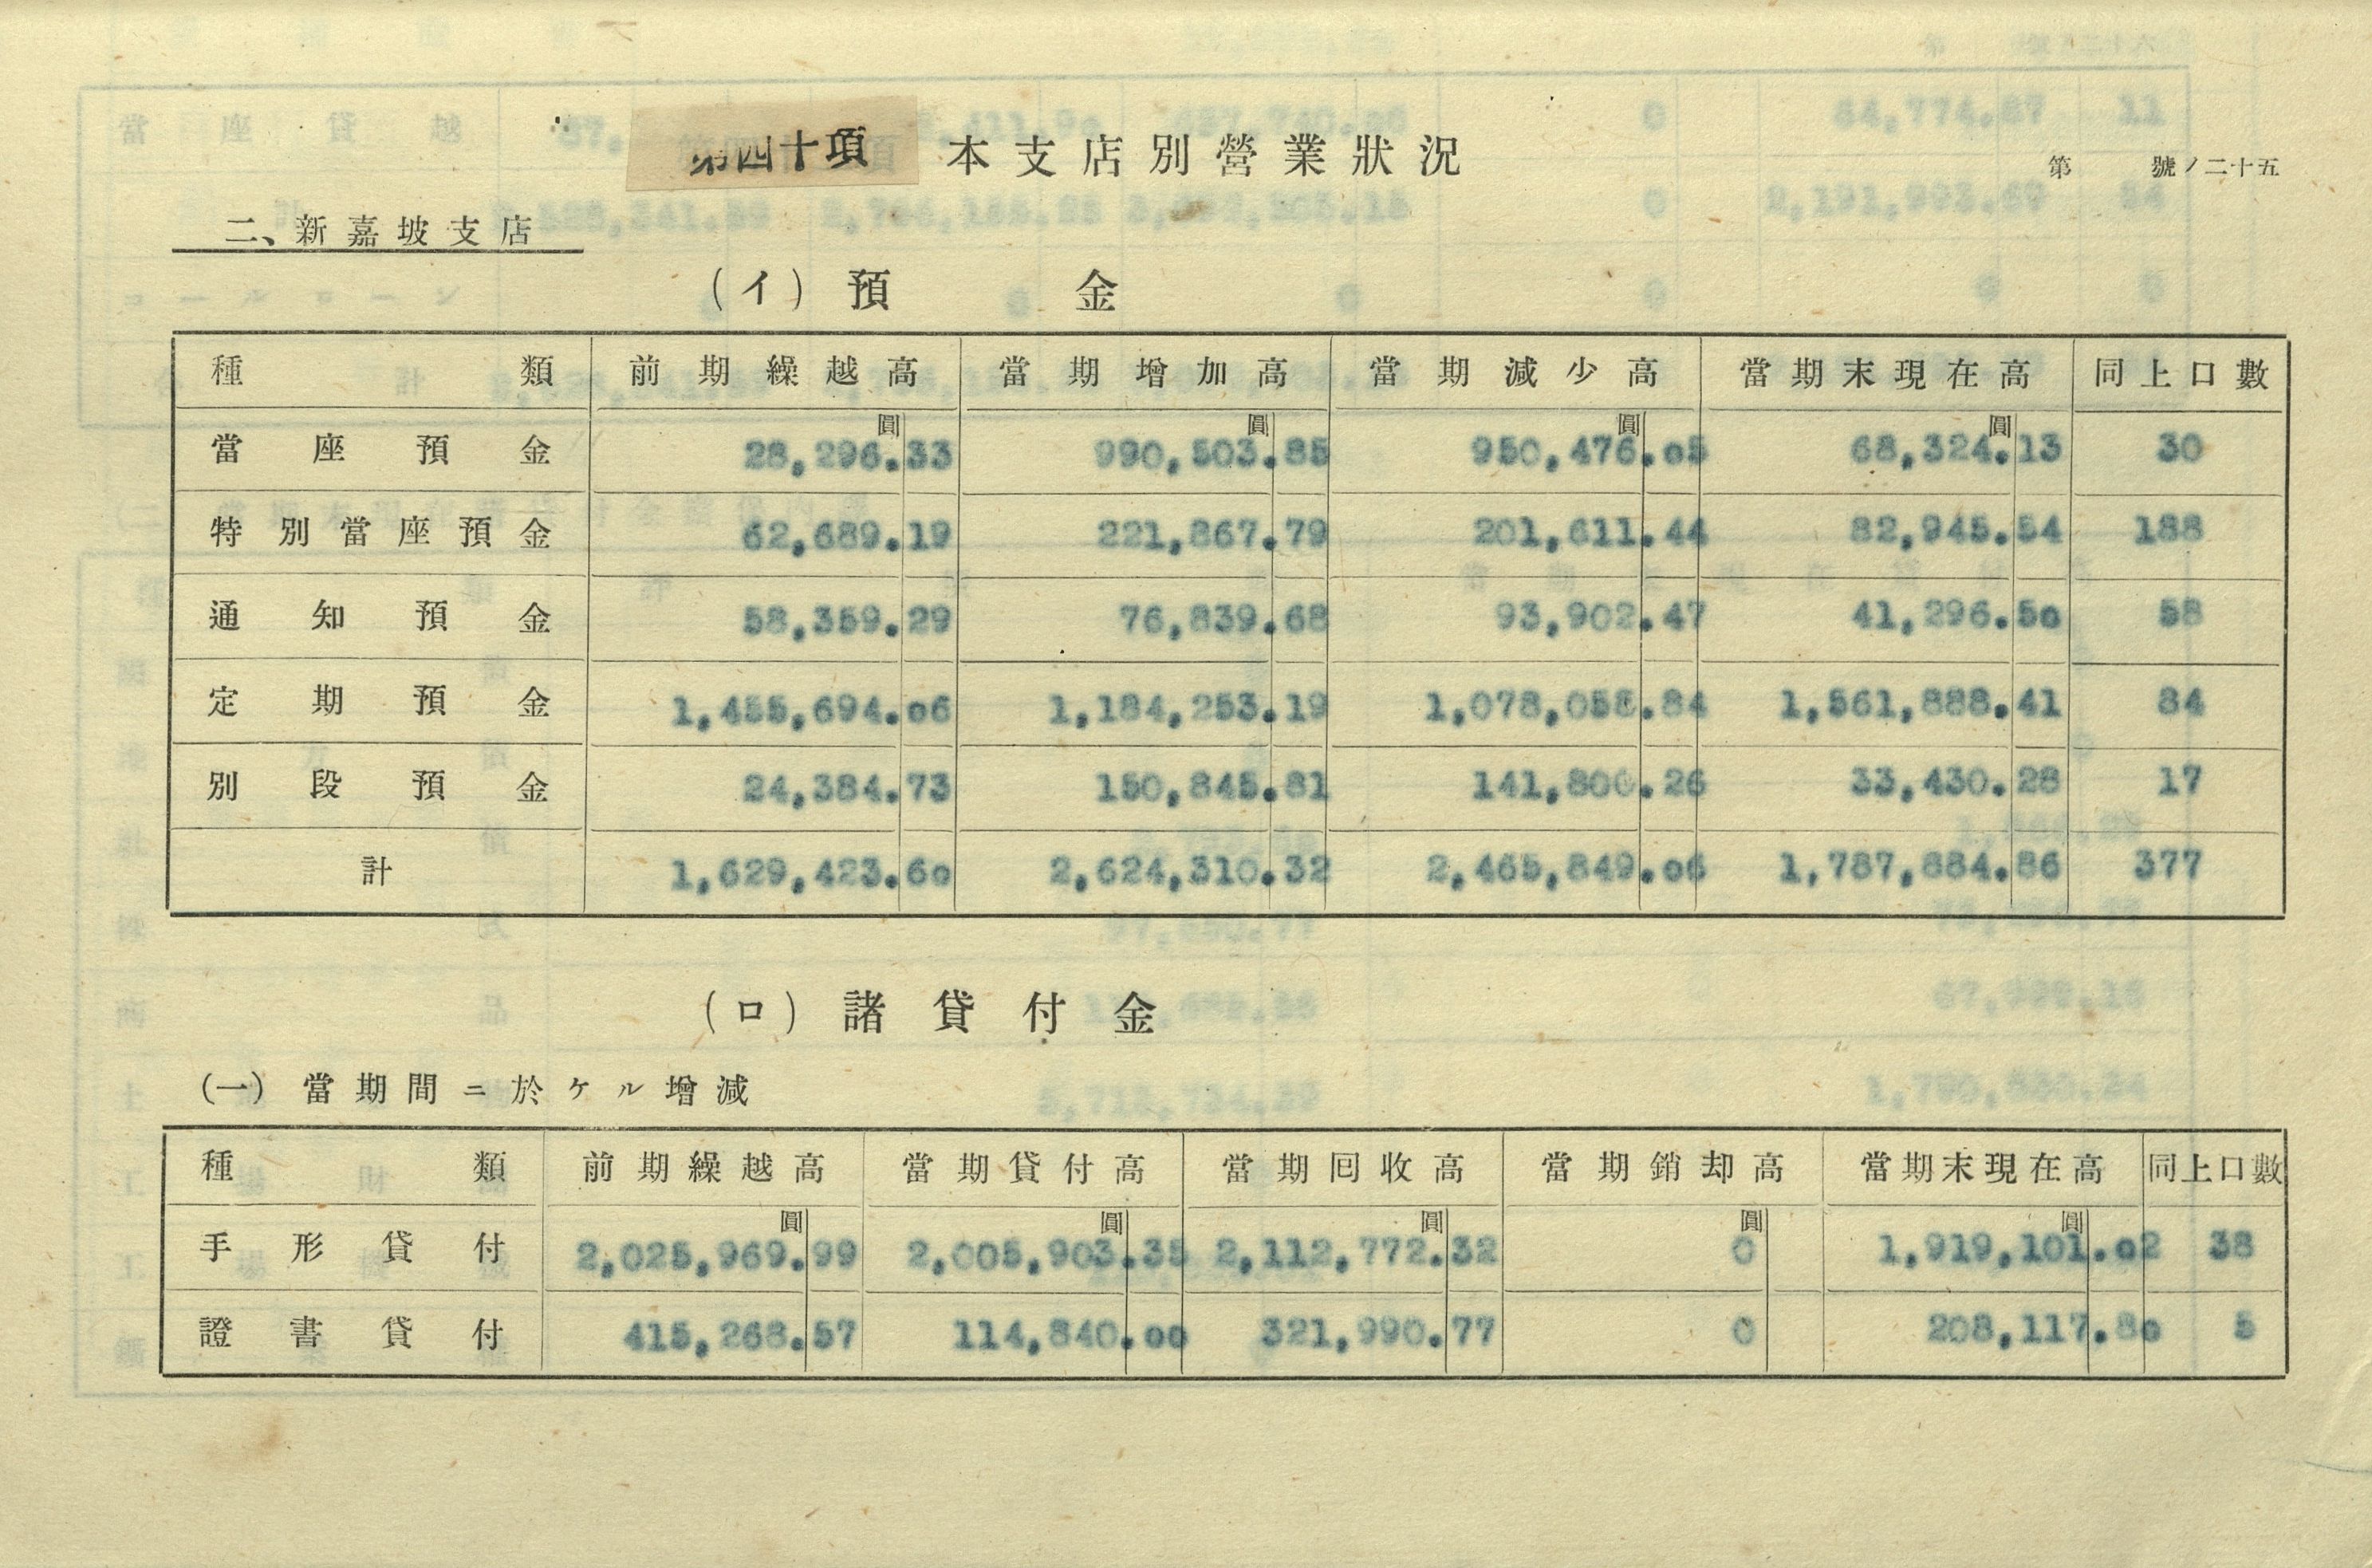 第四十項 本支店別營業狀況
第 號ノ二十五
二、新嘉坡支店
(イ) 預金
種類 前期繰越高 當期增加高 當期減少高 當期末現在高 同上口數
圓 圓 圓 圓
當座預金 28,296.33 990,503.85 950,476.05 68,324.13 30
特別當座預金 62,689.19 221,867.79 201,611.44 82,945.54 188
通知預金 58,359.29 76,839.68 93,902.47 41,296.50 58
定期預金 1,455,694.06 1,184,253.19 1,078,058.84 1,561,888.41 84
別段預金 24,384.73 150,845.81 141,800.26 33,430.28 17
計 1,629,423.60 2,624,310.32 2,465,849.06 1,787,884.86 377
(ロ) 諸貸付金
(一) 當期間ニ於ケル增減
種類 前期繰越高 當期貸付高 當期囘收高 當期銷却高 當期末現在高 同上口數
圓 圓 圓 圓 圓
手形貸付 2,025,969.99 2,005,903.35 2,112,772.32 0 1,919,101.02 38
證書貸付 415,268.57 114,840.00 321,990.77 0 208,117.80 5